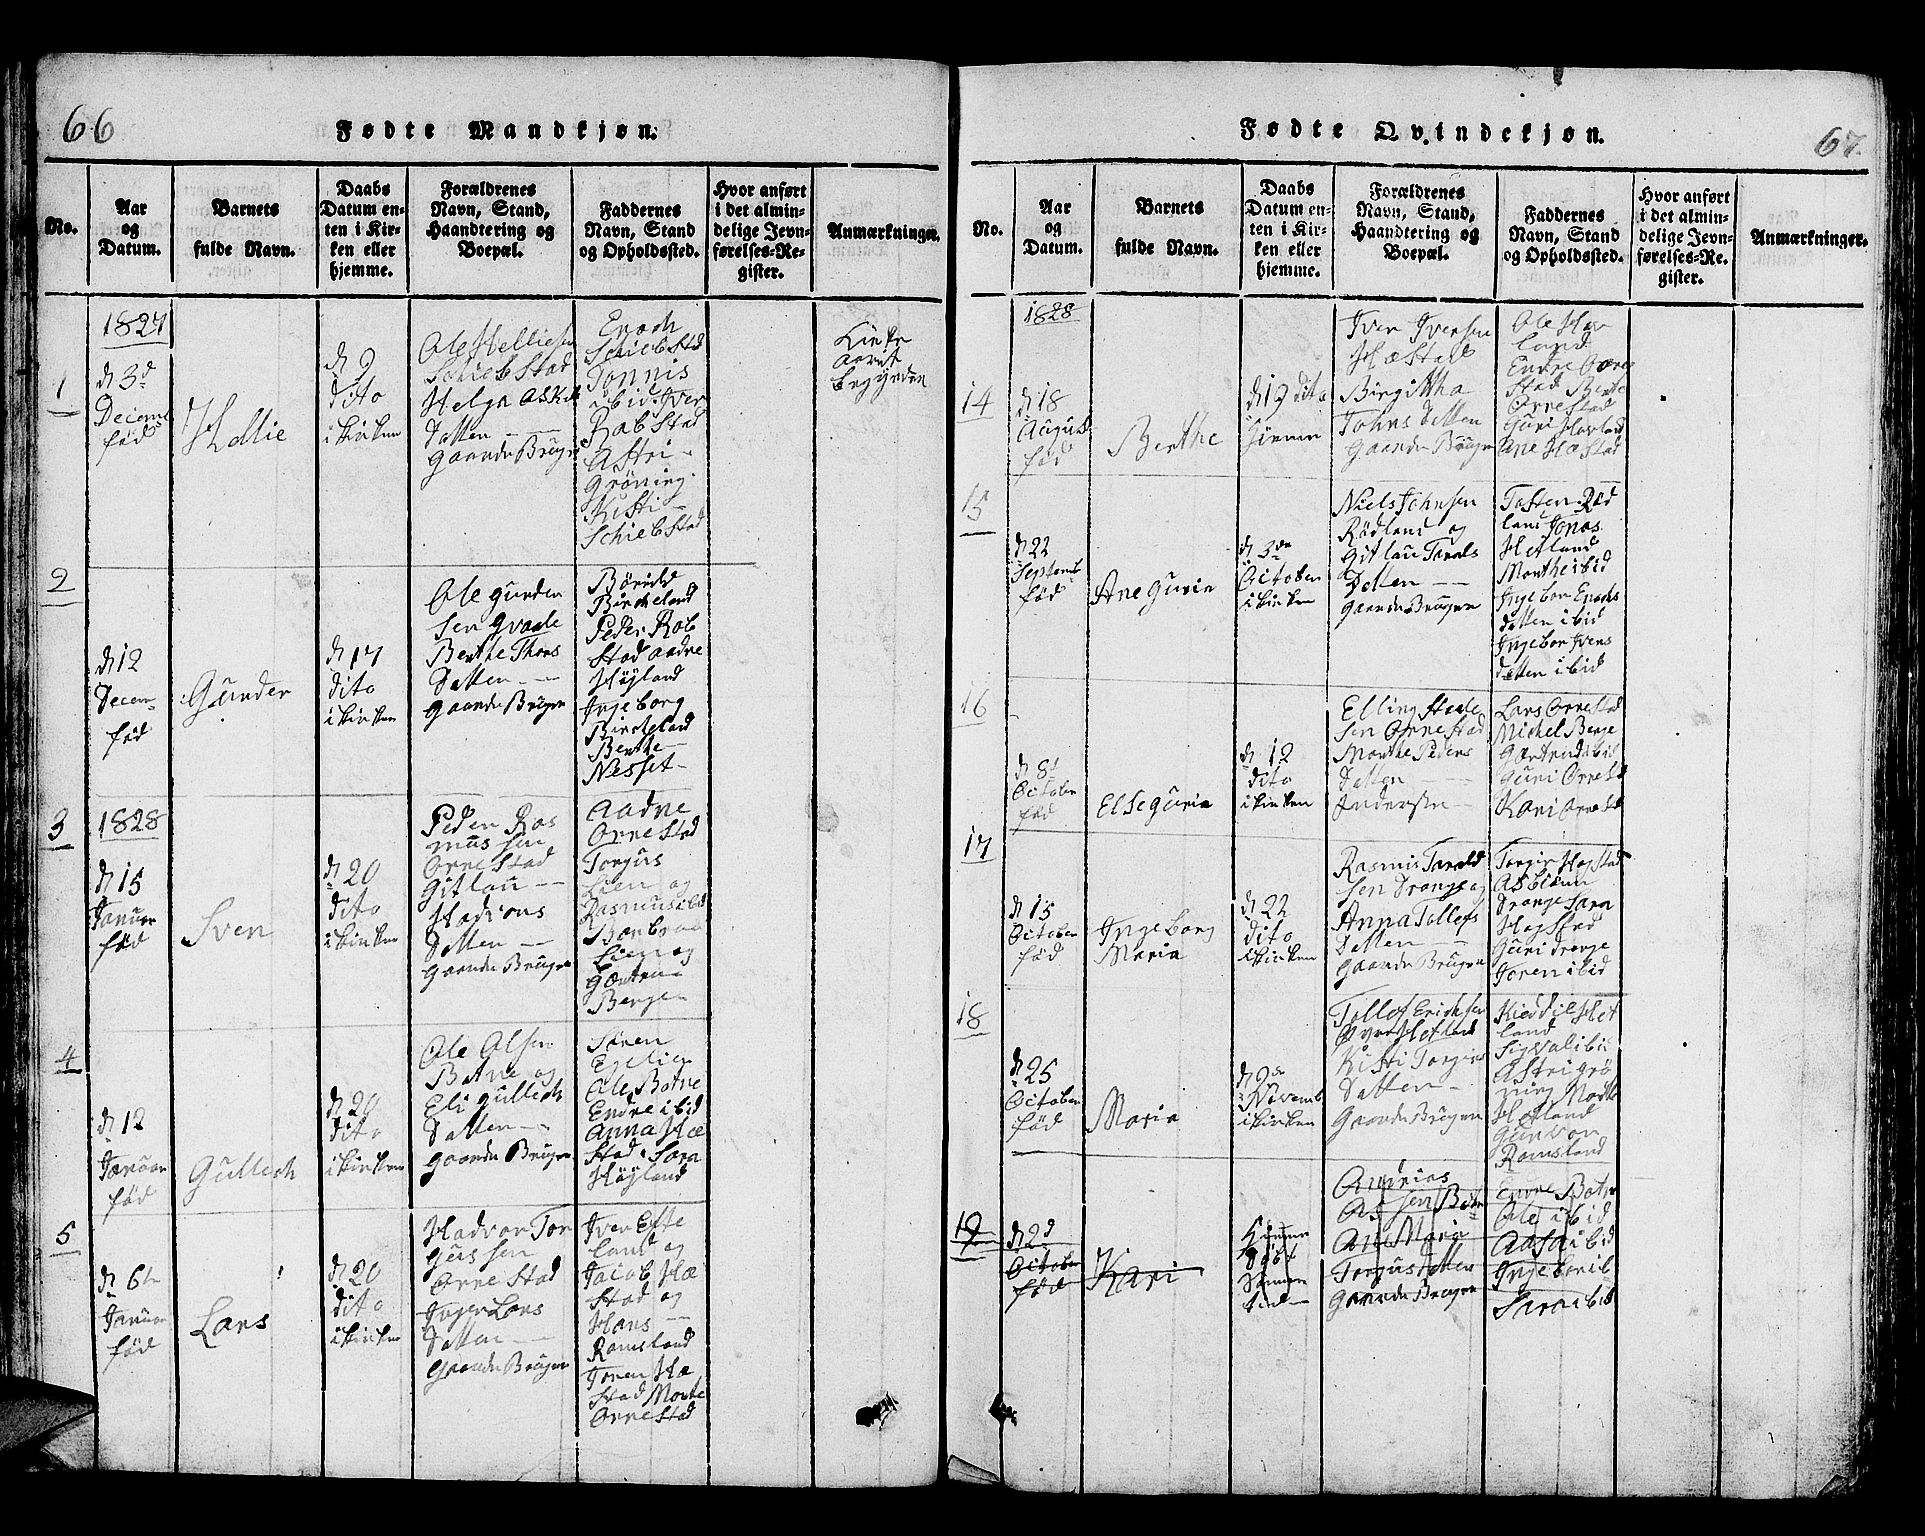 66
Fødte Mandkjøn.
No.
Aar
og
Datum.
Barnets
fulde Navn.
Daabs
Datum en-
ten i Kir-
ken eller
hjemme.
Forældrenes
Navn, Stand,
Haandtering og
Boepæl.
Faddernes
Navn, Stand
og Opholdssted.
Hvor anført
i det almin-
delige Jevn-
førelses-Re-
gister.
Anmærkninger.
1
1827
d 3d
Decem
fød
d 9
dito
i kirken
Ole Hellie
Schieb Stad
Helga Askil
Datter
Gaardn Bruger
Enoch
Schieb Stad
Tønnis
ibid Iver
Rab Stad
Astri
Grøning
Kisti
Schieb Stad
Kirke
aaret
begynder
2
d 12
Decem
fød
Gunder
d 17
dito
i kirken
Ole Gunder
Sen
Berthe Thors
Datter
Gaardn Bruger
Birckeland
Peder Rob
Stad Aadne
Høyland
Ingeborg
Birckeland
Berthe
Nesset
3
1828
d 15
Januar
fød
Sven
d 20
dito
i kirken
Peder Ras
mussen
Orre Stad
Gitlau
Datter
Gaardn Bruger
Aadne
Orre Stad
Torgus
Lien og
Rasmus ibid
Lien og
Berge
4
d 12
Januar
fød
Gullech
d 20
dito
i kirken
Ole Olsen
Botne og
Eli Gullech
Datter
Gaardn Bruger
Søren
Eyelien
Ole Botne
Endre ibid
Anna Hæ
Stad Sara
Høyland
5
d 6te
Januar
fød
Lars
d 20
dito
i kirken
Hadvor Tor
gussen
Orre Stad
Inger Lars
Datter
Gaardn Bruger
Iver Efte
land og
Jacob Hæ
Stad og
Hans
Ramsland
Toren Hæ
Stad Marte
Orre Stad
Fødte Qvindekjøn.
67.
No.
Aar
og
Datum.
Barnets
fulde Navn.
Daabs
Datum en-
ten i Kir-
ken eller
hjemme.
Forældrenes
Navn, Stand,
Haandtering og
Boepæl.
Faddernes
Navn, Stand
og Opholdssted.
Hvor anført
i det almin-
delige Jevn-
førelses-Re-
gister.
Anmærkninger.
1828
14
d 18
August
fød
Berthe
d 19 dito
Iver Iversen
Hæ Stad
Birgittha
Johns Datter
Gaardn Bruger
Ole Hov
land
Endre Orre
Stad Berte
Orre Stad
Guri Hovland
Ane Hæ Stad
15
d 22
Septemb
fød
Ane Guria
d 3de
October
i kirken
Niels Johnsen
Rødland og
Gitlau Tarals
Datter
Gaardn Bruger
Tosten Rød
land Jonas
Hetland
Marthe ibid
Ingebor Enochs
datter ibid
Ingebor Ivers
datter ibid
16
d 8d
October
fød
Else Guria
d 12
dito
i kirken
Elling
Sen Orre Stad
Marthe Peders
Datter
Lars Orre Stad
Michel Berge
Gærtrud ibid
Guri Orre St
Kari Orre St
17
d 15
October
fød
Ingeborg
Maria
d 22
dito
i kirken
Rasmus Tarald
Sen Drange og
Anna Tollefs
Datter
Gaardn Bruger
Torgir Hogstad
Asbiørn
Drange Sara
Hogstad
Guri Drange
Toren ibid
18
d 25
October
fød
Maria
d 9de
Novemb
i kirken
Tollef Erichsen
Øvre Hetland
Kisti Torgirs
Datter
Gaardn Bruger
Kieddil Het
land
Sigval ibid
Astri Grø
ning Marte
Hetland
Gunvor
Ramsland
19
d 2d
October
fød
Kari
Andrias
Ane Maria
Torgusdatter
Gaardn Bruger
Endre Botne
Ole ibid
Aasa ibid
Ingebor ib
Sara ibid